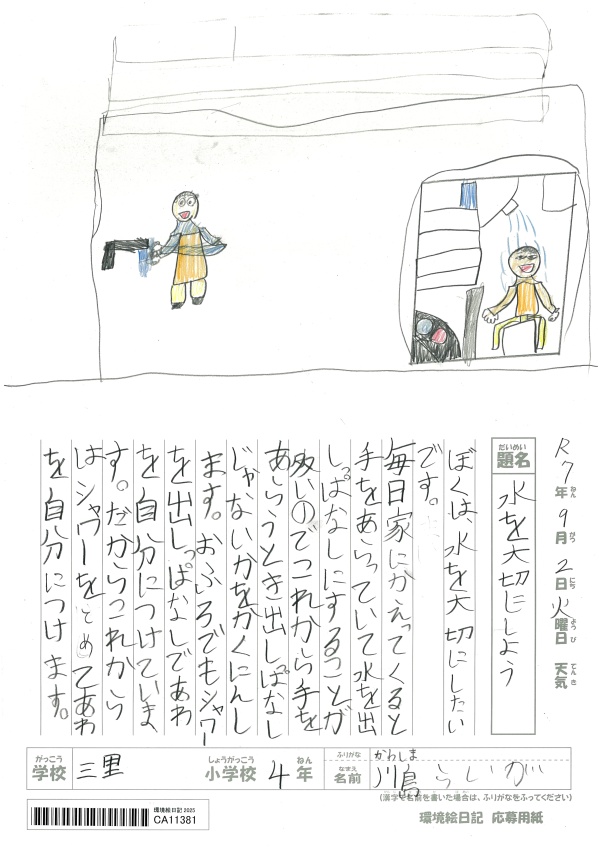 R7年9月2日火曜日 天気
ねん がつ にち ようび てんき
だいめい
題名 水を大切にしよう
ぼくは、水を大切にしたい
です。
毎日家にかえってくると
手をあらっていて水を出
しっぱなしにすることが
多いのでこれから手を
あらうとき出しぱなし
じゃないかをかくにんし
ます。おふろでもシャワー
を出しっぱなしであわ
を自分につけていま
す。だからこれから
はシャワーをとめてあわ
を自分につけます。
がっこう
学校 三里
しょうがっこう
小学校 4年
ねん
ふりがな かわしま
なまえ
名前 川島 らいが
(漢字で名前を書いた場合は、ふりがなをふってください)
環境絵日記 2025
CA11381
環境絵日記 応募用紙